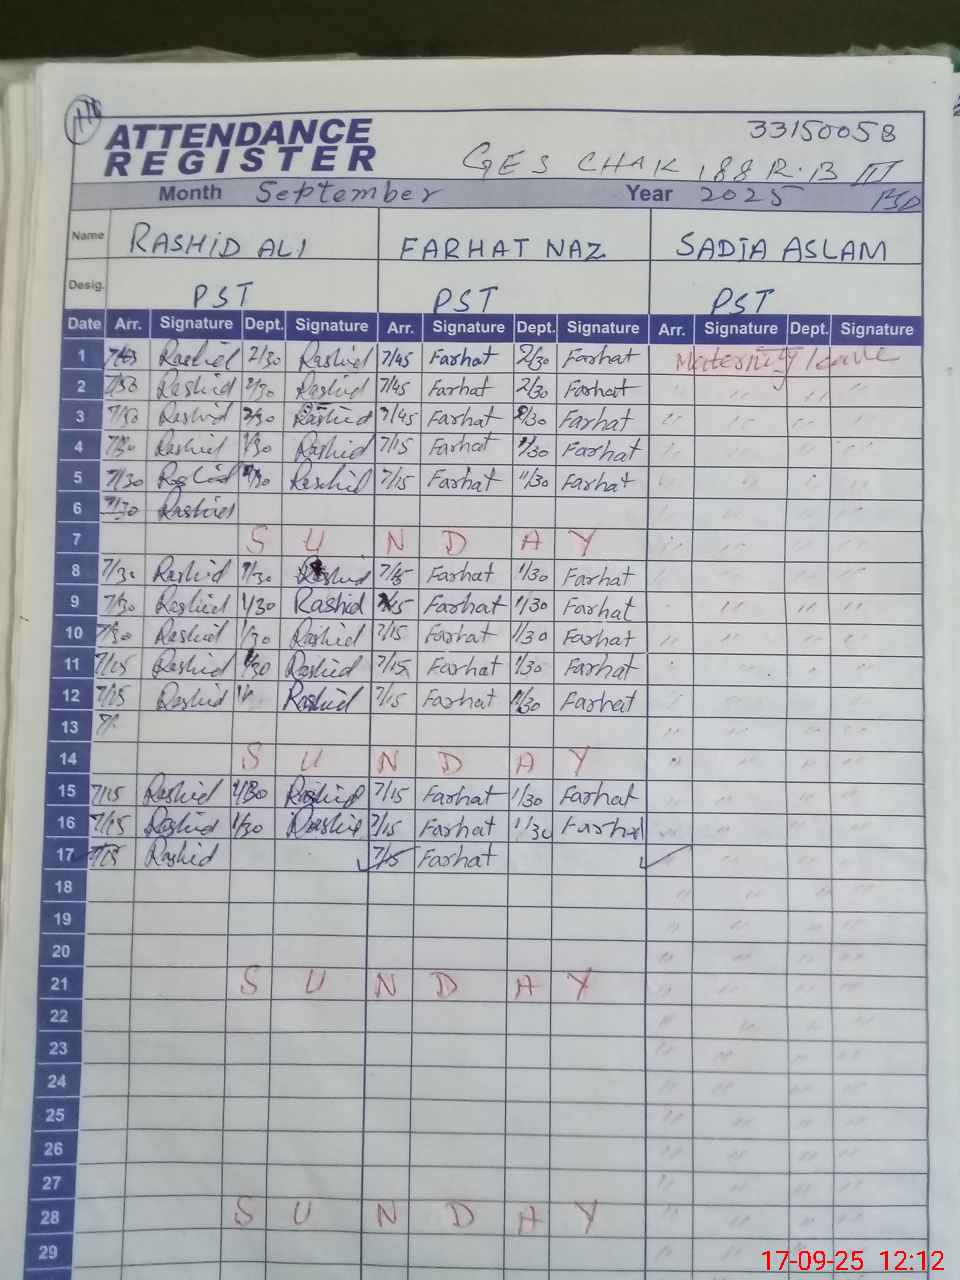 ATTENDANCE
REGISTER
33150058
GES CHAK 188 R.B III
Month September Year 2025
Name RASHID ALI FARHAT NAZ SADIA ASLAM
Desig. PST PST PST
Date Arr. Signature Dept. Signature Arr. Signature Dept. Signature Arr. Signature Dept. Signature
1 Rashid 2/30 Rashid 7/45 Farhat 2/30 Farhat Maternity leave
2 Rashid 2/30 Rashid 7/45 Farhat 2/30 Farhat
3 Rashid Rashid 7/45 Farhat Farhat
4 7/30 Rashid 1/30 Rashid 7/15 Farhat 1/30 Farhat
5 7/30 Rashid Rashid 7/15 Farhat 11/30 Farhat
6 7/30 Rashid
7 S U N D A Y
8 7/30 Rashid 1/30 Rashid Farhat 1/30 Farhat
9 7/30 Rashid 1/30 Rashid Farhat 1/30 Farhat
10 7/30 Rashid 1/30 Rashid 7/15 Farhat 1/30 Farhat
11 7/15 Rashid 1/30 Rashid 7/15 Farhat 1/30 Farhat
12 7/15 Rashid Rashid 7/15 Farhat 1/30 Farhat
13
14 S U N D A Y
15 7/15 Rashid 1/30 Rashid 7/15 Farhat 1/30 Farhat
16 7/15 Rashid 1/30 Rashid 7/15 Farhat 1/30 Farhat
17 7/15 Rashid 7/15 Farhat
18
19
20
21 S U N D A Y
22
23
24
25
26
27
28 S U N D A Y
29
17-09-25 12:12